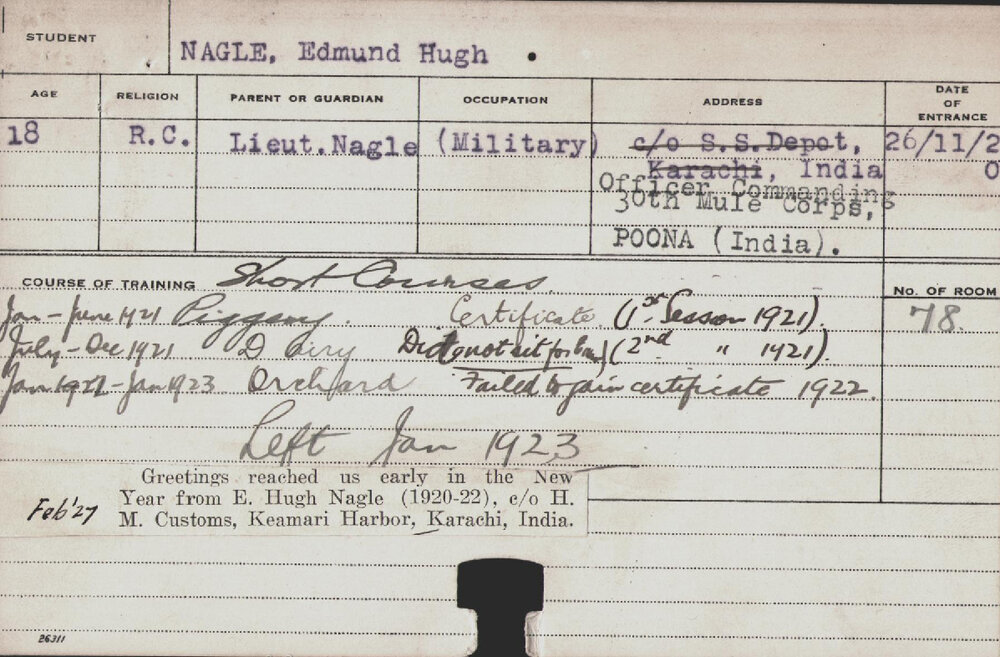 STUDENT
NAGLE, Edmund Hugh
AGE RELIGION PARENT OR GUARDIAN OCCUPATION ADDRESS DATE OF ENTRANCE
18 R.C. Lieut.Nagle (Military) c/o S.S.Depot, 26/11/20
Karachi, India
Officer Commanding
30th Mule Corps,
POONA (India).
COURSE OF TRAINING Short Courses. No. OF ROOM
Jan - June 1921 Piggery. Certificate. (1st Session 1921). 78.
July - Dec 1921 Dairy Did not sit for (2nd " 1921).
Jan 1922 - Jan 1923 Orchard Failed to gain certificate 1922.
Left Jan 1923
Greetings reached us early in the New
Year from E. Hugh Nagle (1920-22), c/o H.
M. Customs, Keamari Harbor, Karachi, India.
Feb '27
26311